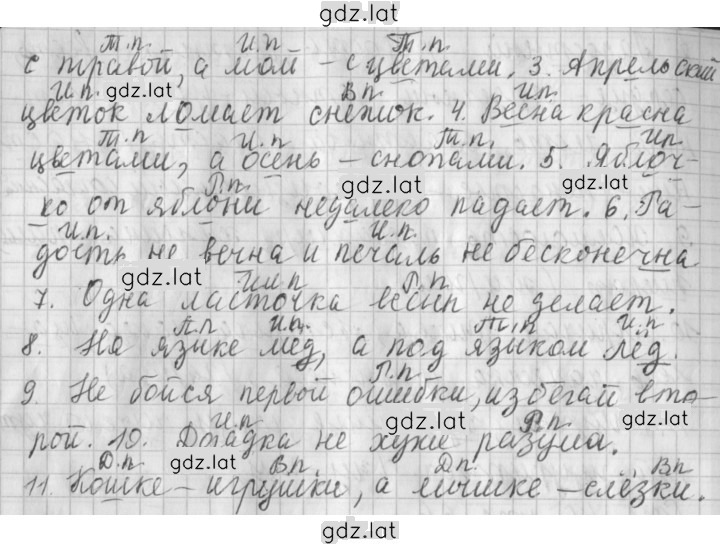 gdz.lat
Т.п. И.п. Т.п.
с травой, а май – с цветами. 3. Апрельский
И.п. gdz.lat В.п. И.п.
цветок ломает снежок. 4. Весна красна
Т.п. И.п. Т.п. И.п.
цветами, а осень – снопами. 5. Яблоч-
Р.п. gdz.lat gdz.lat
ко от яблони недалеко падает. 6. Ра-
И.п. И.п.
дость не вечна и печаль не бесконечна
gdz.lat И.п. Р.п.
7. Одна ласточка весны не делает.
П.п И.п. Т.п И.п
8. На языке мёд, а под языком лёд.
Р.п.
9. Не бойся первой ошибки, избегай вто-
И.п. gdz.lat Р.п. gdz.lat
рой. 10. Догадка не хуже разума.
Д.п. gdz.lat В.п. Д.п. gdz.lat В.п
11. Кошке – игрушки, а мышке – слёзки.
gdz.lat